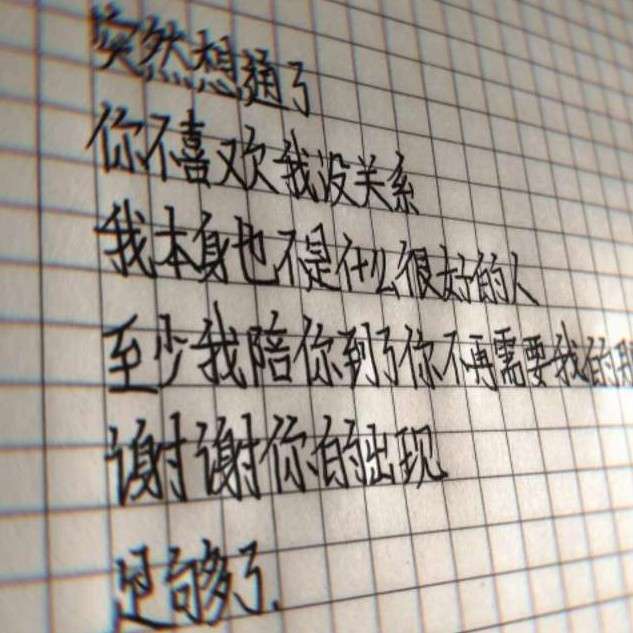 突然想通了
你不喜欢我没关系
我本身也不是什么很好的人
至少我陪你到了你不再需要我的那
谢谢你的出现
足够了.